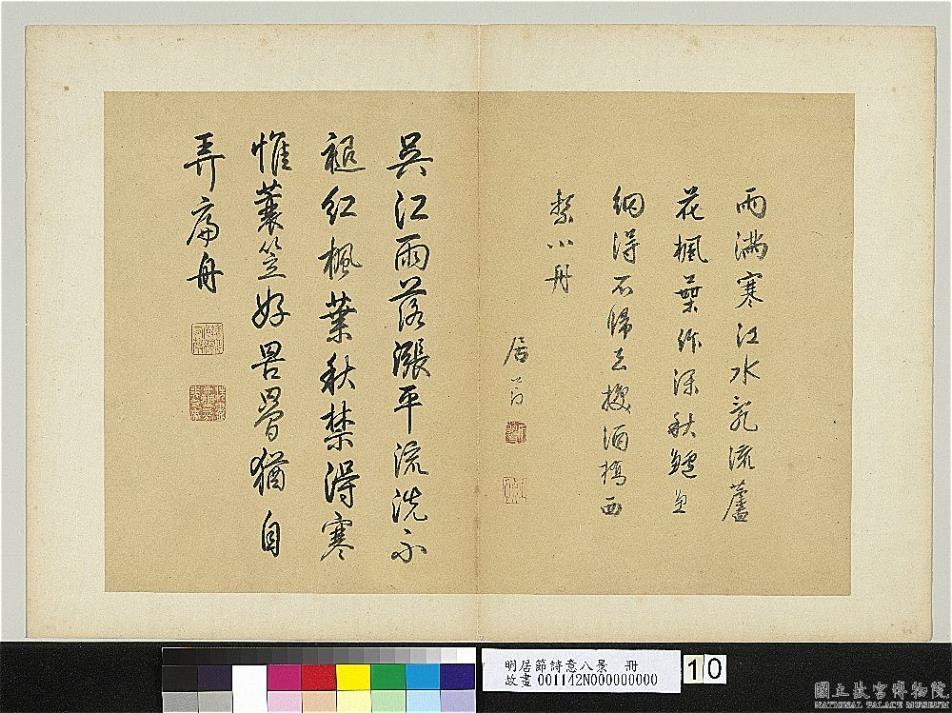 雨滿寒江水亂流蘆
花楓葉作深秋鱸魚
網得不歸去換酒橋西
繫小舟
居節
吳江雨落漲平流洗不
褪紅楓葉秋禁得寒
惟蓑笠好罟罾猶自
弄扁舟
明居節詩意八景 冊
故畫 001142N000000000
10
國立故宮博物院
NATIONAL PALACE MUSEUM